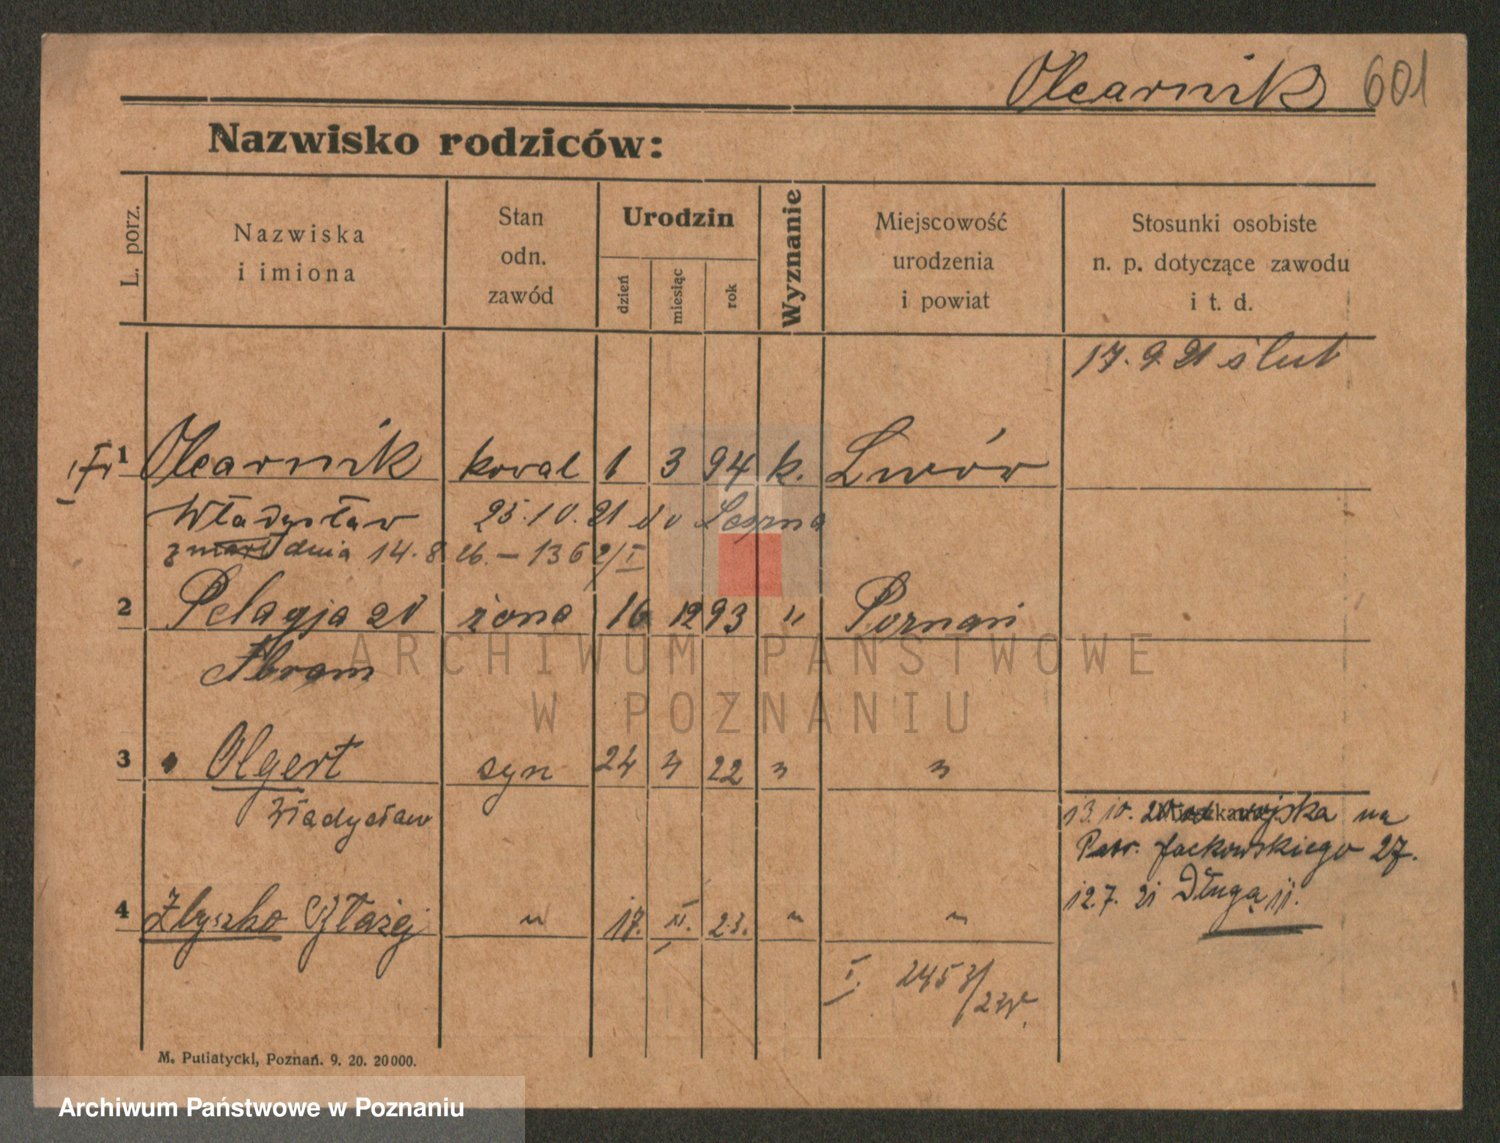 Olearnik 601
Nazwisko rodziców:
L. porz.
Nazwiska
i imiona
Stan
odn.
zawód
Urodzin
dzień
miesiąc
rok
Wyznanie
Miejscowość
urodzenia
i powiat
Stosunki osobiste
n. p. dotyczące zawodu
i t. d.
17. 9. 21 ślub
1 Olearnik kowal 1 3 94 k. Lwów
Władysław 25.10.21 do Leszna
zmarł dnia 14.8.26. – 1362/I
2 Pelagja zd żona 16 12 93 " Poznań
Abram
3 Olgert syn 24 " 22 " "
Władysław
13.10. 20 od wojska na
Patr. Jackowskiego 27.
12.7. 21 Długa 11.
4 Zbyszko Błażej " 17. II. 23. " "
I. 2453/
23
M. Putiatycki, Poznań. 9. 20. 20000.
ARCHIWUM PAŃSTWOWE
W POZNANIU
Archiwum Państwowe w Poznaniu